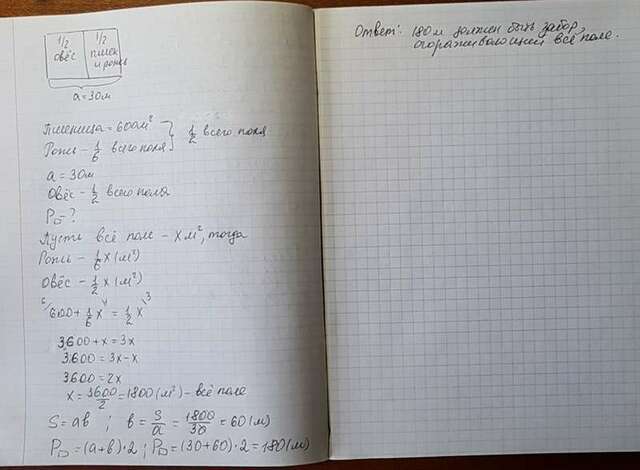 1/2 овёс
1/2 пшен и рожь
a = 30м
Пшеница = 600м² } 1/2 всего поля
Рожь - 1/6 всего поля
a = 30м
Овёс - 1/2 всего поля
P▭ - ?
Пусть всё поле - x м², тогда
Рожь - 1/6 x (м²)
Овёс - 1/2 x (м²)
6/ 600 + 1/6 x \1 = 1/2 x \3
3600 + x = 3x
3600 = 3x - x
3600 = 2x
x = 3600/2 = 1800 (м²) - всё поле
S = ab ; b = S/a = 1800/30 = 60 (м)
P▭ = (a + b) · 2 ; P▭ = (30 + 60) · 2 = 180 (м)
Ответ: 180 м должен быть забор,
огораживающий всё поле.